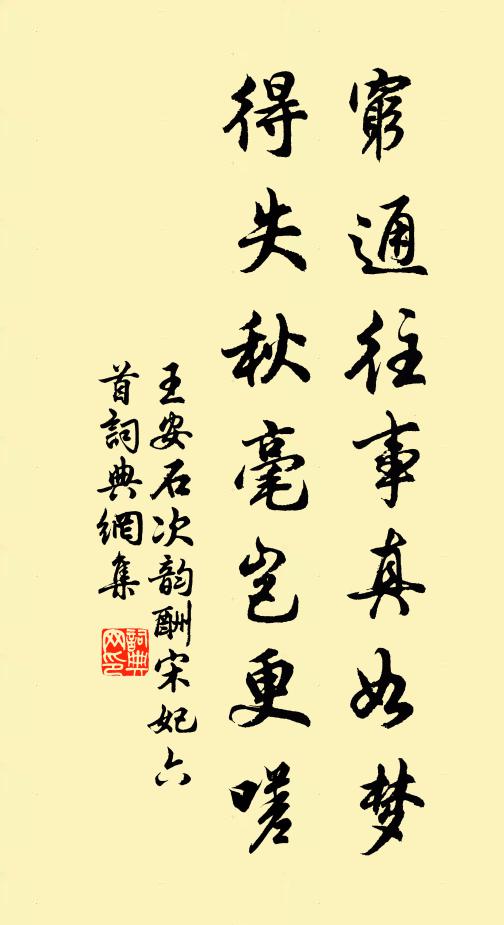 窮通往事真如梦
得失秋毫岂更嗟
王安石次韵酬宋妃六
首詞典網集
詞典
网印